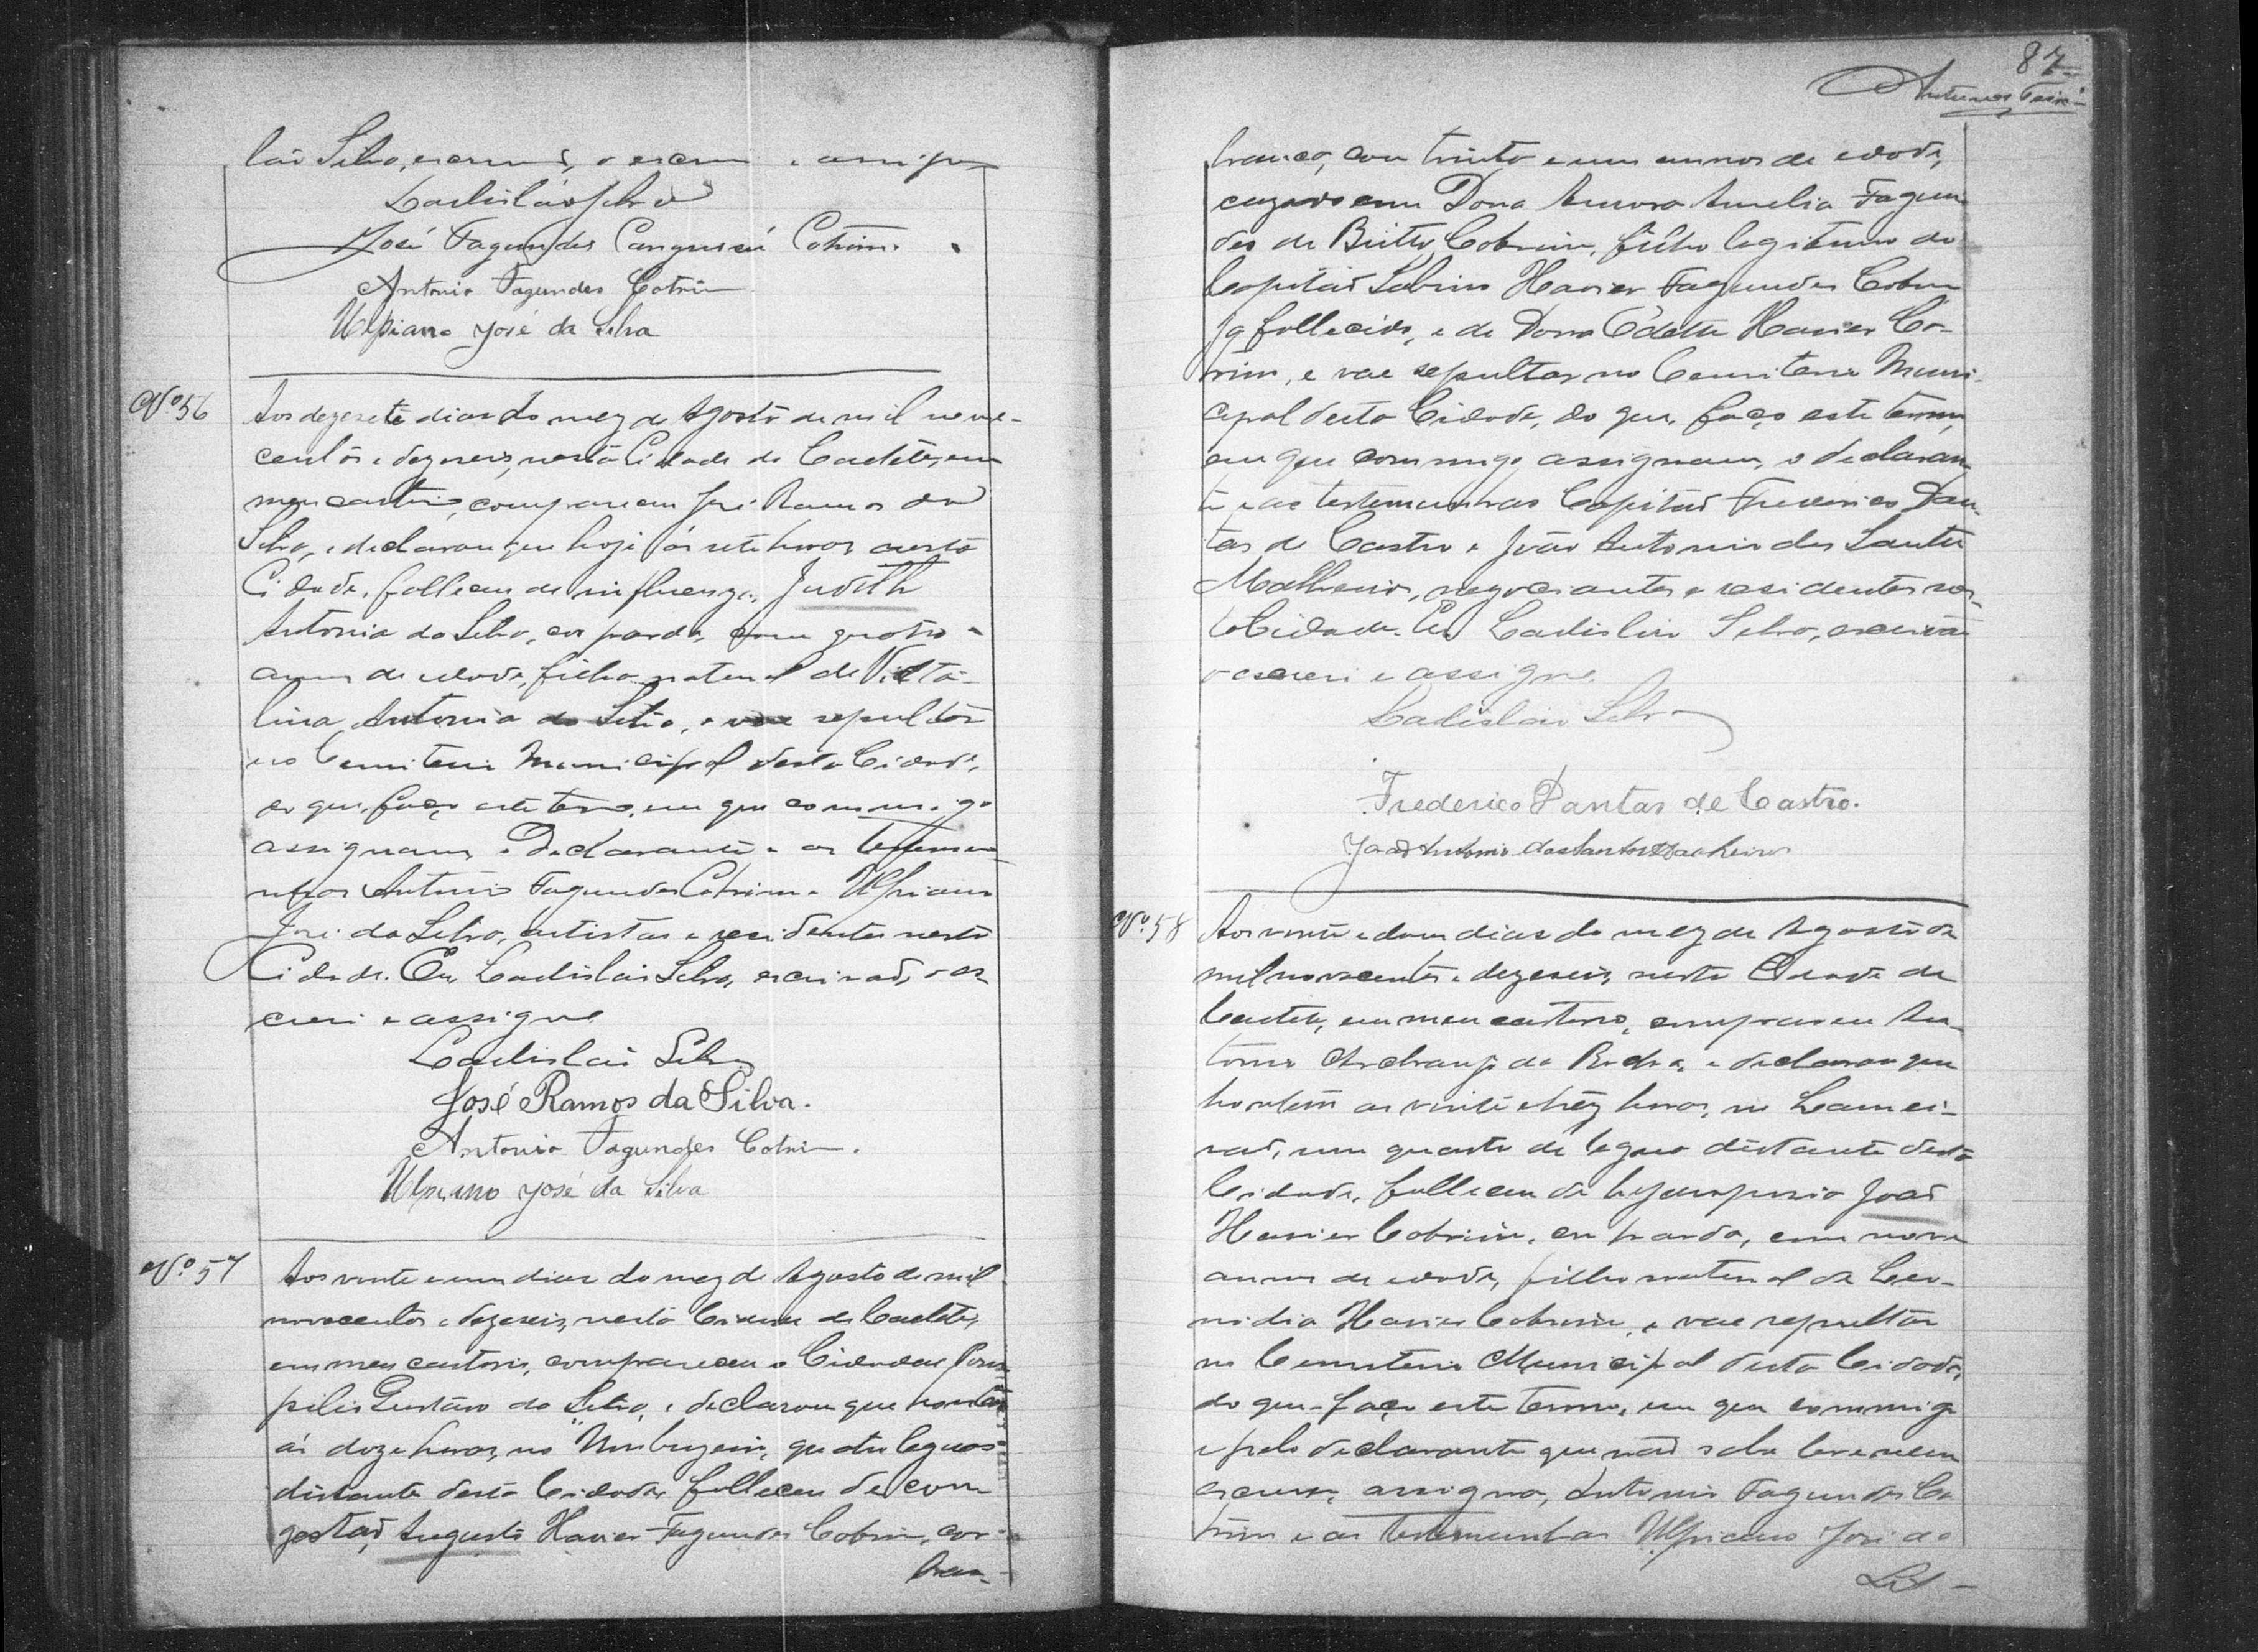 láo Silva, escrivão, o escrevi e assigno
Ladisláo Silva
José Fagundes Canguçú Cotrim.
Antonio Fagundes Cotrim
Ulpiano José da Silva
Nº 56
Aos dezesete dias do mez de Agosto de mil nove-
centos e dezeseis, nesta Cidade de Caeteté, em
meu cartorio, compareceu José Ramos da
Silva, e declarou que hoje ás sete horas nesta
Cidade, falleceu de influenza, Judith
Antonia da Silva, cor parda, com quatro
annos de edade, filha natural de Victa-
lina Antonia da Silva, e vae sepultar
no Cemiterio Municipal desta Cidade,
do que, faço este termo, em que commigo
assignam o Declarante e as testemu-
nhas Antonio Fagundes Cotrim e Ulpiano
José da Silva, artistas e residentes nesta
Cidade. Eu, Ladisláo Silva, escrivão, o es-
crevi e assigno
Ladisláo Silva
José Ramos da Silva.
Antonio Fagundes Cotrim.
Ulpiano José da Silva
Nº 57
Aos vinte e um dias do mez de Agosto de mil
novecentos e dezeseis, nesta Cidade de Caeteté,
em meu cartorio, compareceu o Cidadão Pom-
pilio Gustavo da Silva, e declarou que hontem
ás doze horas, no Umbuzeiro, quatro leguas
distante desta Cidade, falleceu de con-
gestão, Augusto Xavier Fagundes Cotrim, cor
bran-
87
Antunes
branca, com trinta e um annos de edade,
cazado com Dona Aurora Amelia Fagun-
des de Britto Cotrim, filho legitimo do
Capitão Sabino Xavier Fagundes Cotrim
já fallecido, e de Dona Odette Xavier Co-
trim, e vae sepultar no Cemiterio Muni-
cipal desta Cidade, do que, faço este termo,
em que commigo assignam, o declaran-
te e as testemunhas Capitão Frederico Dan-
tas de Castro e João Antonio dos Santos
Malheiros, negociantes e residentes nes-
ta Cidade. Eu Ladisláo Silva, escrivão
o escrevi e assigno.
Ladisláo Silva
Frederico Dantas de Castro.
João Antonio dos Santos Malheiros
Nº 58
Aos vinte e dous dias do mez de Agosto de
mil novecentos e dezeseis, nesta Cidade de
Caeteté, em meu cartorio, compareceu An-
tonio Archanjo da Rocha, e declarou que
hontem as vinte e trez horas, no
um quarto de legua distante desta
Cidade, falleceu de hydropesia João
Xavier Cotrim, cor parda, com nove
annos de edade, filho natural de Leo-
nidia Xavier Cotrim, e vae sepultar
no Cemiterio Municipal desta Cidade,
do que faço este termo, em que commigo
e pelo declarante que não sabe ler e nem
escrever, assigna, Antonio Fagundes Co-
trim e as testemunhas Ulpiano José da
Sil-